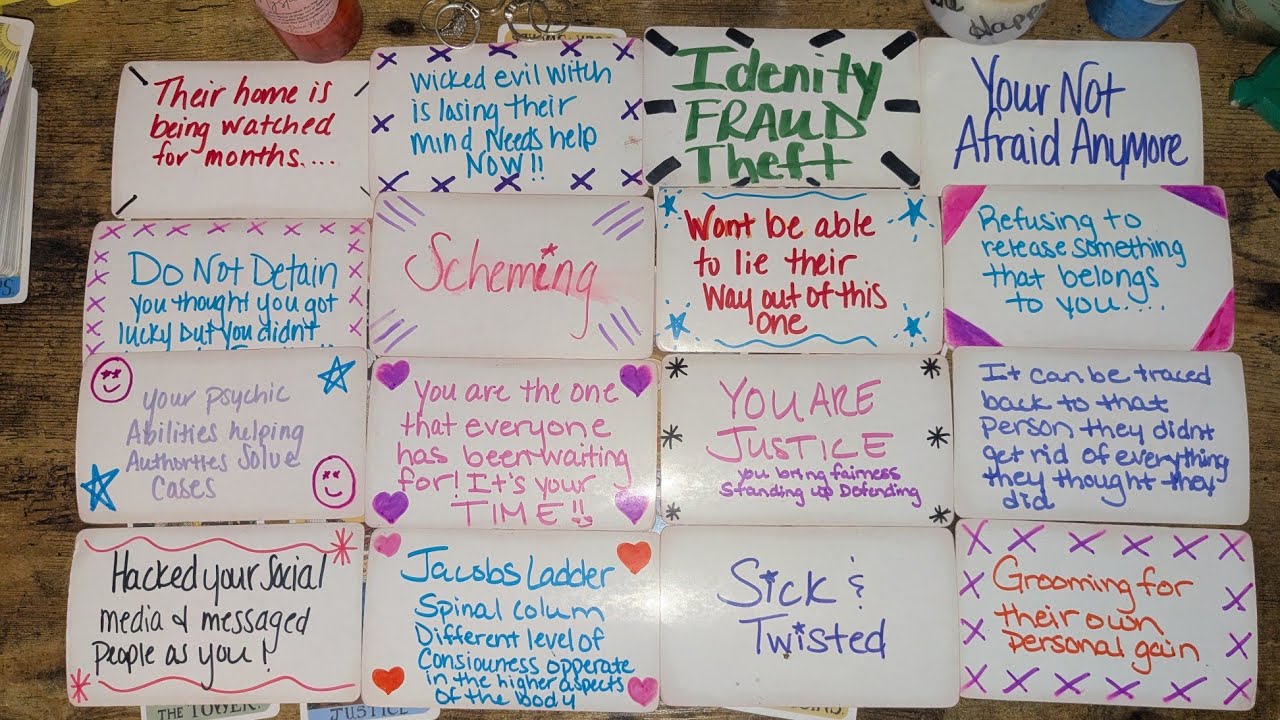 Happ
Their home is
being watched
for months....
Wicked evil witch
is losing their
mind Needs help
NOW!!
Idenity
FRAUD
Theft
Your Not
Afraid Anymore
Do Not Detain
you thought you got
lucky but you didn't
Scheming
Wont be able
to lie their
Way out of this
one
Refusing to
release something
that belongs
to you....
your psychic
Abilities helping
Authorties Solve
Cases
You are the one
that everyone
has been waiting
for! It's your
TIME!!
YOU ARE
JUSTICE
you bring fairness
Standing up Defending
It can be traced
back to that
person they didnt
get rid of everything
they thought they
did
Hacked your Social
media & messaged
people as you!
Jacobs Ladder
Spinal colum
Different level of
Consiouness opperate
in the higher aspects
of the body
Sick &
Twisted
Grooming for
their own
personal gain
THE TOWER.
JUSTICE